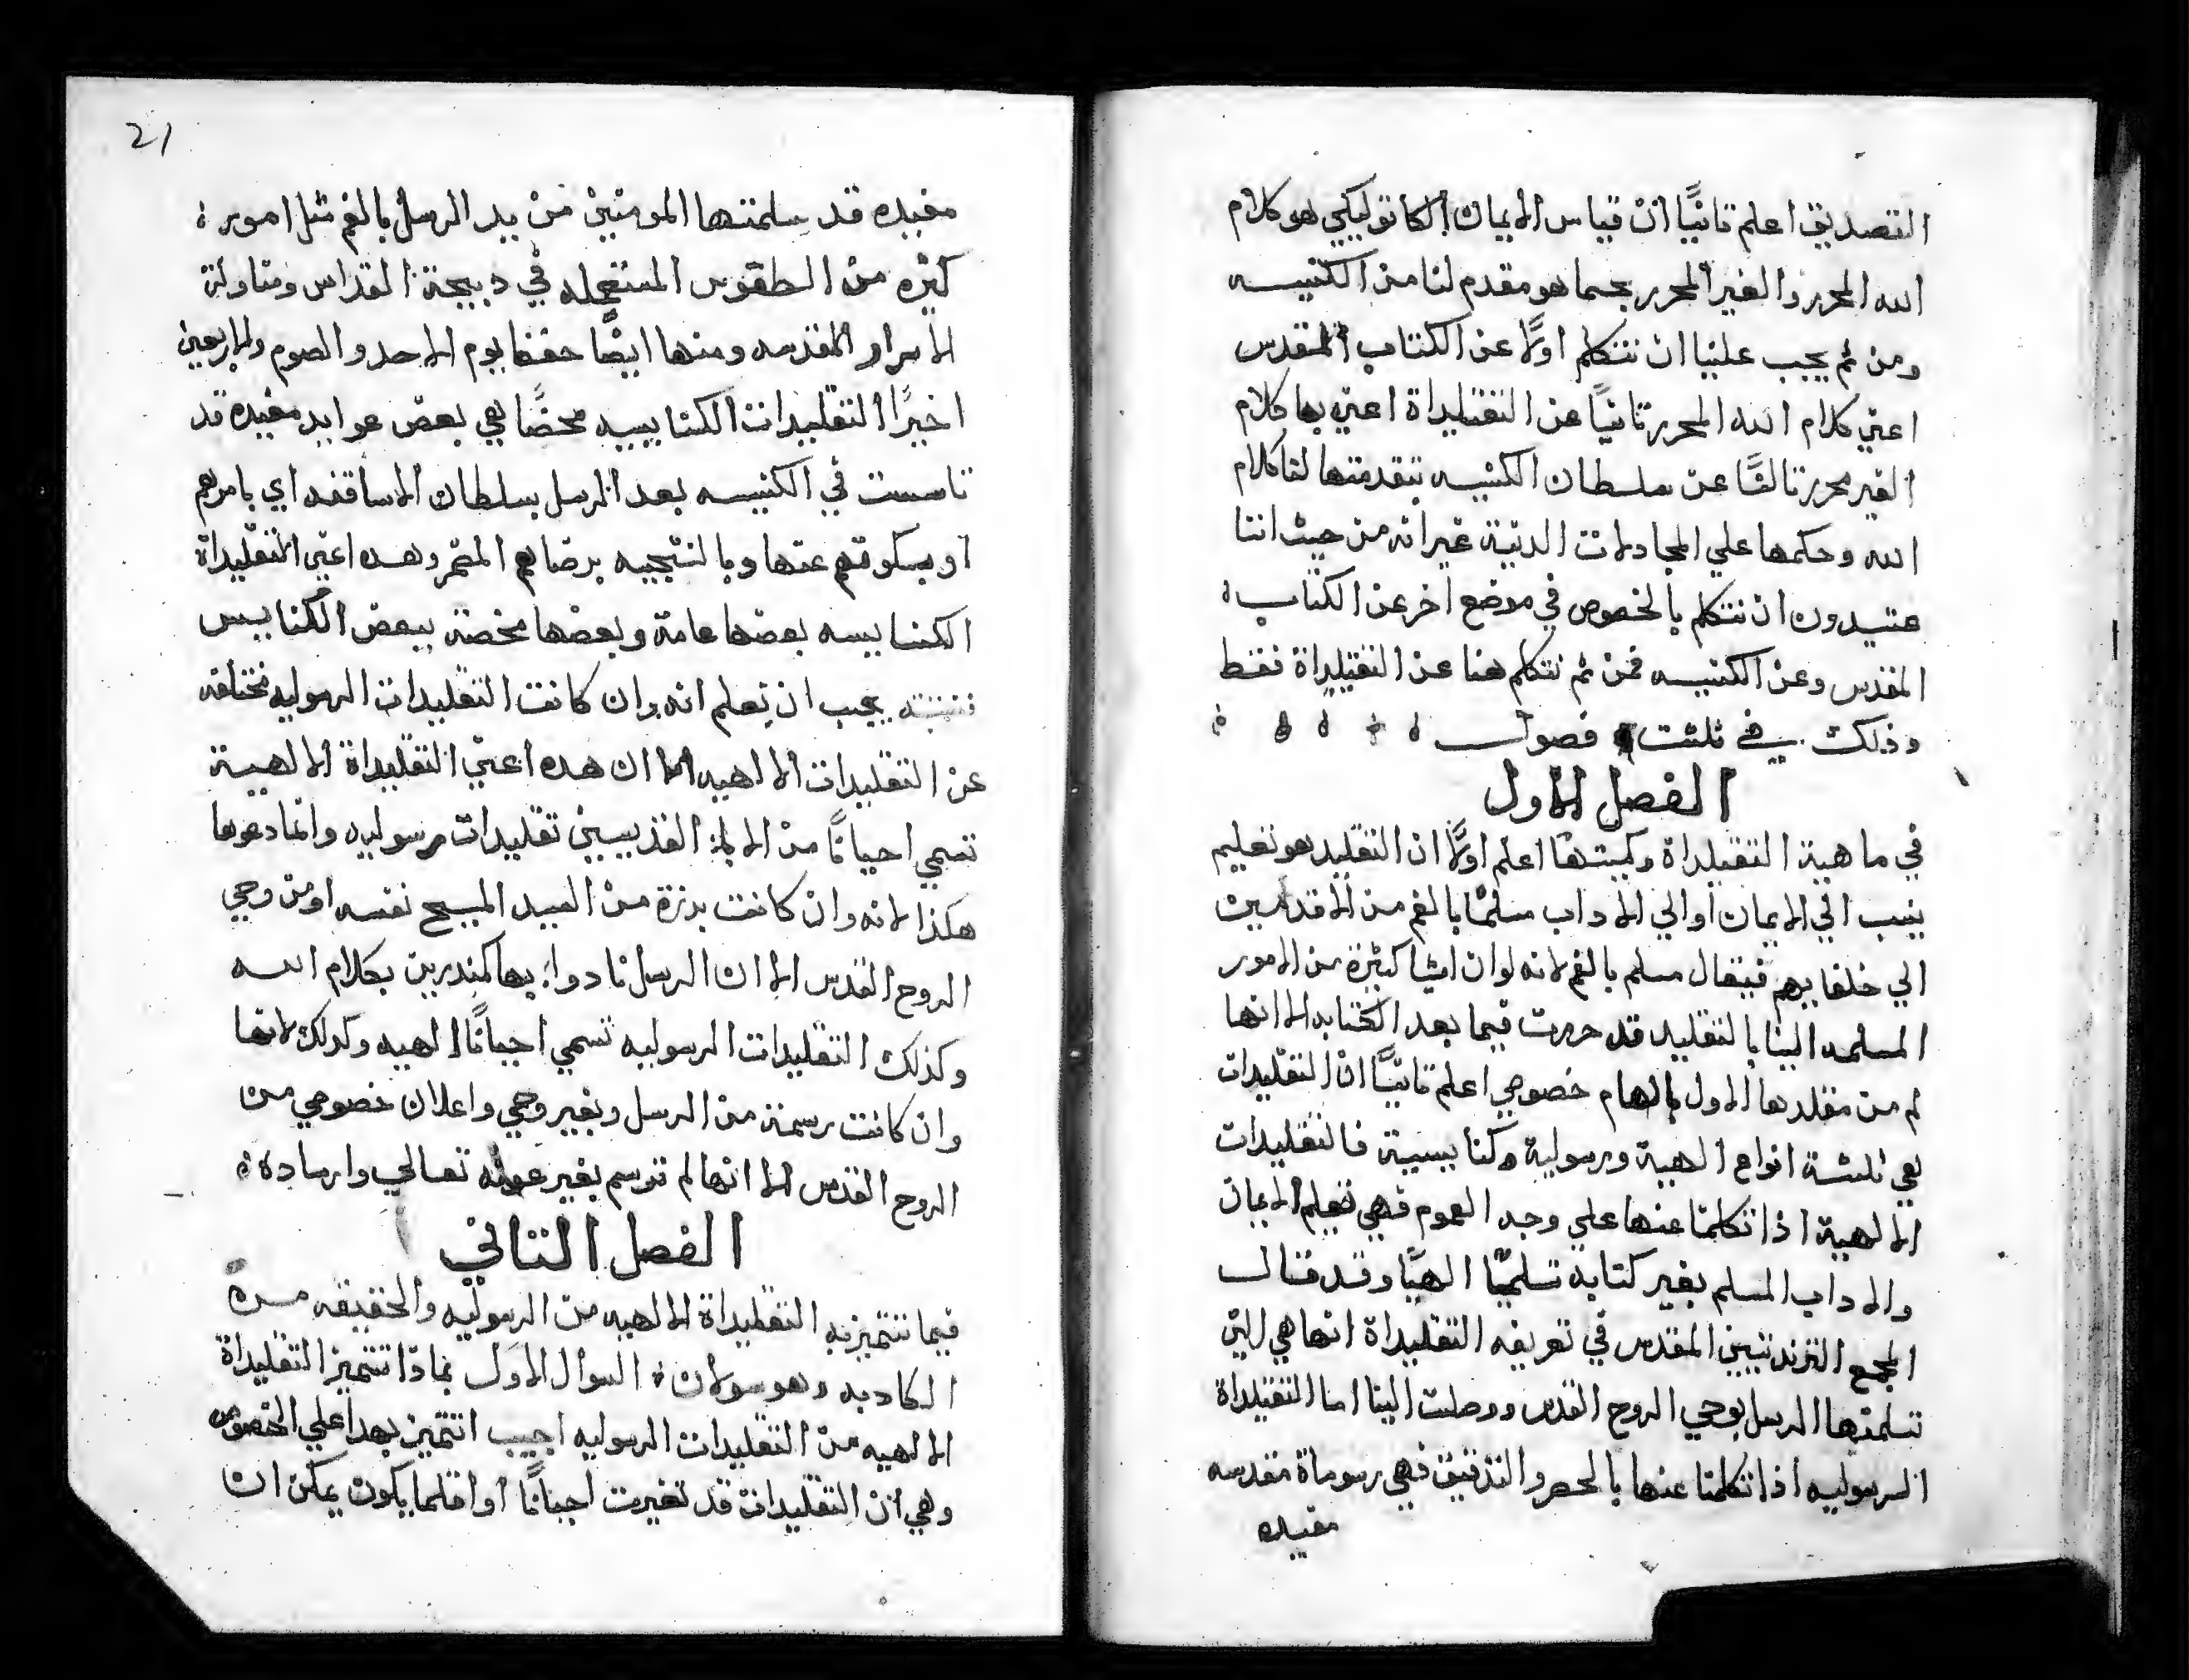 التصديق اعلم تانيًا ان قياس الايمان الكاتوليكي هو كلام
الله المحرر والغير المحرر بحسما هو مقدم لنا من الكنيسه
ومن ثم يجب علينا ان نتكلم اولًا عن الكتاب المقدس
اعني كلام الله المحرر تانيًا عن التقليداة اعني بها كلام
الغير محرر تالتًا عن سلطان الكنيسه بتقدمتها لنا كلام
الله وحكمها علي المجادلات الدينية غير انه من حيث اننا
عتيدون ان نتكلم بالخصوص في موضع اخر عن الكتاب
المقدس وعن الكنيسه فمن ثم نتكلم هنا عن التقليداة فقط
وذلك في ثلثت فصول
الفصل الاول
في ماهية التقليداة وكميتها اعلم اولًا ان التقليد هو تعليم
ينسب الي الايمان او الي الاداب مسلمًا بالفم من الاقدمين
الي خلفايهم فيقال مسلم بالفم لانه لوان اشيا كثيرة من الامور
المسلمه الينا بالتقليد قد حررت فيما بعد الكتابه الا انها
لم من مقلدها الاول بالهام خصوصي اعلم تانيًا ان التقليدات
هي ثلثة انواع الهية ورسولية وكنايسية فالتقليدات
الالهية اذا تكلمنا عنها علي وجه العموم فهي تعليم الايمان
والاداب المسلم بغير كتابة تسليمًا الهيًا وقد قال
المجمع التريدنتيني المقدس في تعريفه التقليداة انها هي التي
تسلمتها الرسل بوحي الروح القدس ووصلت الينا اما التقليداة
الرسوليه اذا تكلمنا عنها بالحصر والتدقيق فهي رسوماة مقدسه
مفيده
21
مفيده قد سلمتها المومنين من يد الرسل بالفم مثل امور
كثيره من الطقوس المستعمله في دبيحة القداس ومناولة
الاسرار المقدسه ومنها ايضًا حفظ يوم الاحد والصوم والاربعين
اخيرًا التقليدات الكنايسيه محضًا هي بعض عوايد مفيده قد
تاسست في الكنيسه بعد الرسل بسلطان الاساقفه اي بامرهم
او بسكوتهم عنها وبالنتيجيه برضاهم المضمر وهده اعني التقليداة
الكنايسيه بعضها عامة وبعضها مخصتة ببعض الكنايس
يجب ان تعلم انه وان كانت التقليدات الرسوليه مختلفه
عن التقليدات الالهيه الا ان هده اعني التقليداة الالهية
تسمي احيانًا من الابا القديسين تقليدات رسوليه وانما دعوها
هكذا لانه وان كانت بدرزة من السيد المسيح نفسه او من وحي
الروح القدس الا ان الرسل نادوا بها كمندرين بكلام الله
وكذلك التقليدات الرسوليه تسمي احيانًا الهيه وكدلك لانها
وان كانت رسمة من الرسل وبغير وحي واعلان خصوصي من
الروح القدس الا انها لم ترسم بغير عونه تعالي وارشاده
الفصل التاني
فيما تتميز به التقليداة الالهيه من الرسوليه والحقيقه من
الكادبه وهو سولان السوال الاول بمادا تتميز التقليداة
الالهيه من التقليدات الرسوليه اجيب اتتميز بهدا علي الخصوص
وهي ان التقليدات قد تغيرت احيانًا او اقلما يكون يمكن ان